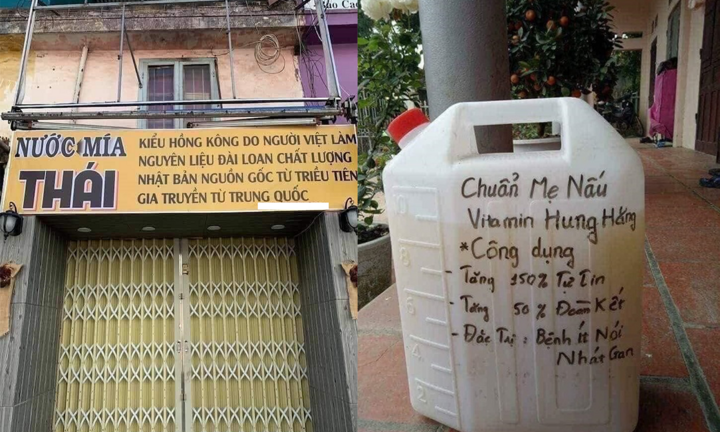 Bảo Cao
NƯỚC MÍA
THÁI
KIỂU HỒNG KÔNG DO NGƯỜI VIỆT LÀM
NGUYÊN LIỆU ĐÀI LOAN CHẤT LƯỢNG
NHẬT BẢN NGUỒN GỐC TỪ TRIỀU TIÊN
GIA TRUYỀN TỪ TRUNG QUỐC
Chuẩn Mẹ Nấu
Vitamin Hung Hăng
*Công dụng
- Tăng 150% Tự Tin
- Tăng 50% Đoàn Kết
- Đặc Trị : Bệnh Ít Nói
Nhát Gan
8
6
4
2